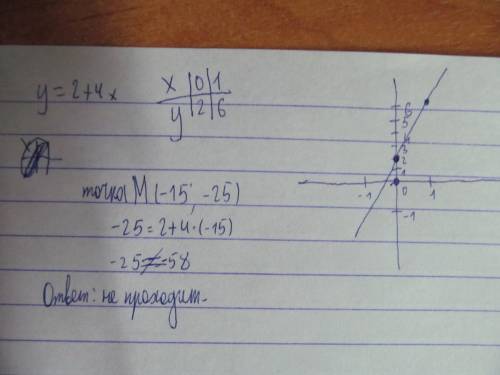 y = 2+4x
x | 0 | 1
y | 2 | 6
точка M (-15; -25)
-25 = 2+4·(-15)
-25 ≠ -58
Ответ: не проходит.
6
5
4
3
2
1
-1 0 1
-1